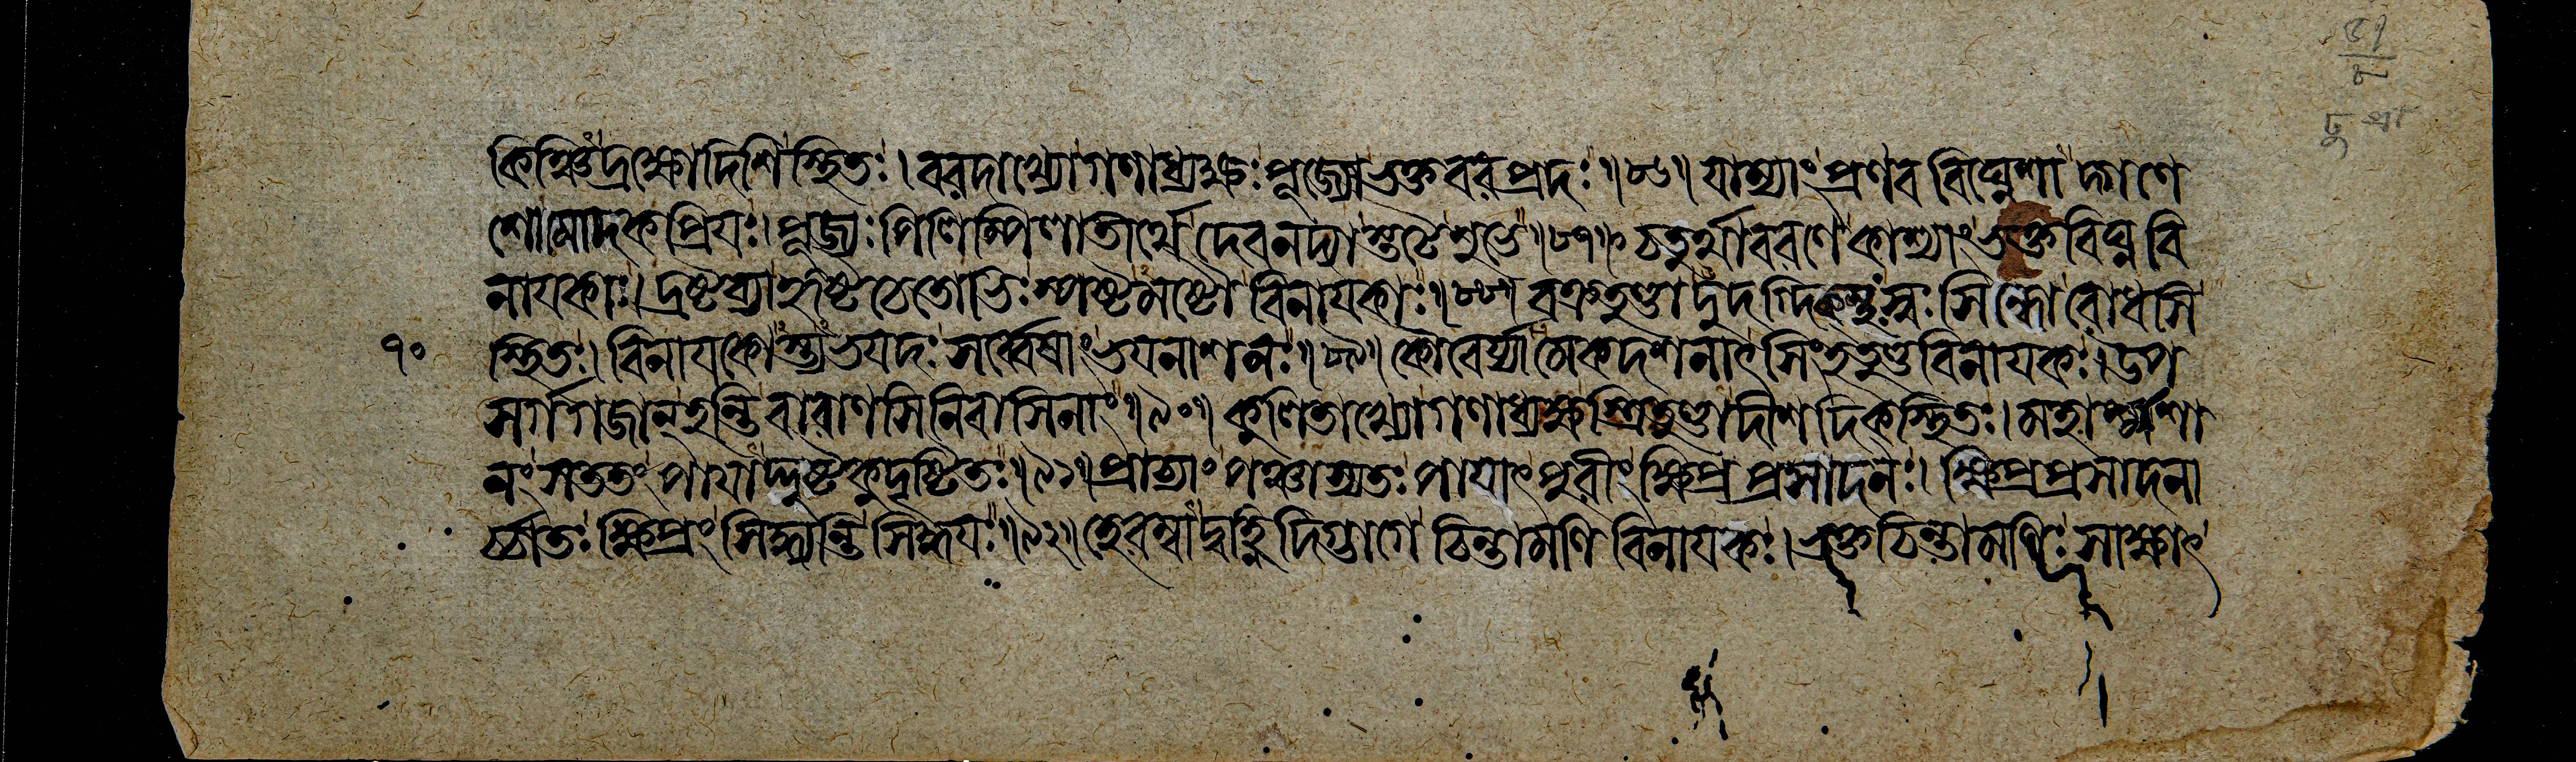 কিঞ্চিদ্রক্ষোদিশি স্থিতঃ। বরদাখ্যো গণাধ্যক্ষঃ পূজ্যো ভক্তবরপ্রদঃ॥৮৬॥ যাম্যাং প্রণববিঘ্নেশাদ্গণে
শো মোদকপ্রিয়ঃ। পূজ্যঃ পিশিঙ্গিলাতীর্থে দেবনদ্যাস্তটে শুভে॥৮৭॥ চতুর্থাবরণে কাশ্যাং ভক্তবিঘ্নবি
নায়কাঃ। দ্রষ্টব্যা হৃষ্টচেতোভিঃ স্পষ্টমষ্টৌ বিনায়কাঃ॥৮৮॥ বক্রতুণ্ডাদুদগ্দিক্স্থঃ স্বঃসিন্ধো রোধসি
৭০ স্থিতঃ। বিনায়কোস্ত্যভয়দঃ সর্ব্বেষাং ভয়নাশনঃ॥৮৯॥ কৌবের্য্যামেকদশনাৎ সিংহতুণ্ডবিনায়কঃ। উপ
সর্গগজান্ হন্তি বারাণসিনিবাসিনাং॥৯০॥ কুণিতাখ্যো গণাধ্যক্ষস্ত্রিতুণ্ডাদীশদিক্স্থিতঃ। মহাশ্মশা
নং সততং পায়াদ্দুষ্টকুদৃষ্টিতঃ॥৯১॥ প্রাচ্যাং পঞ্চাস্যতঃ পায়াৎ পুরীং ক্ষিপ্রপ্রসাদনঃ। ক্ষিপ্রপ্রসাদনা
র্চ্চাতঃ ক্ষিপ্রং সিদ্ধ্যন্তি সিদ্ধয়ঃ॥৯২॥ হেরম্বাদ্বহ্নিদিগ্ভাগে চিন্তামণিবিনায়কঃ। ভক্তচিন্তামণিঃ সাক্ষাৎ